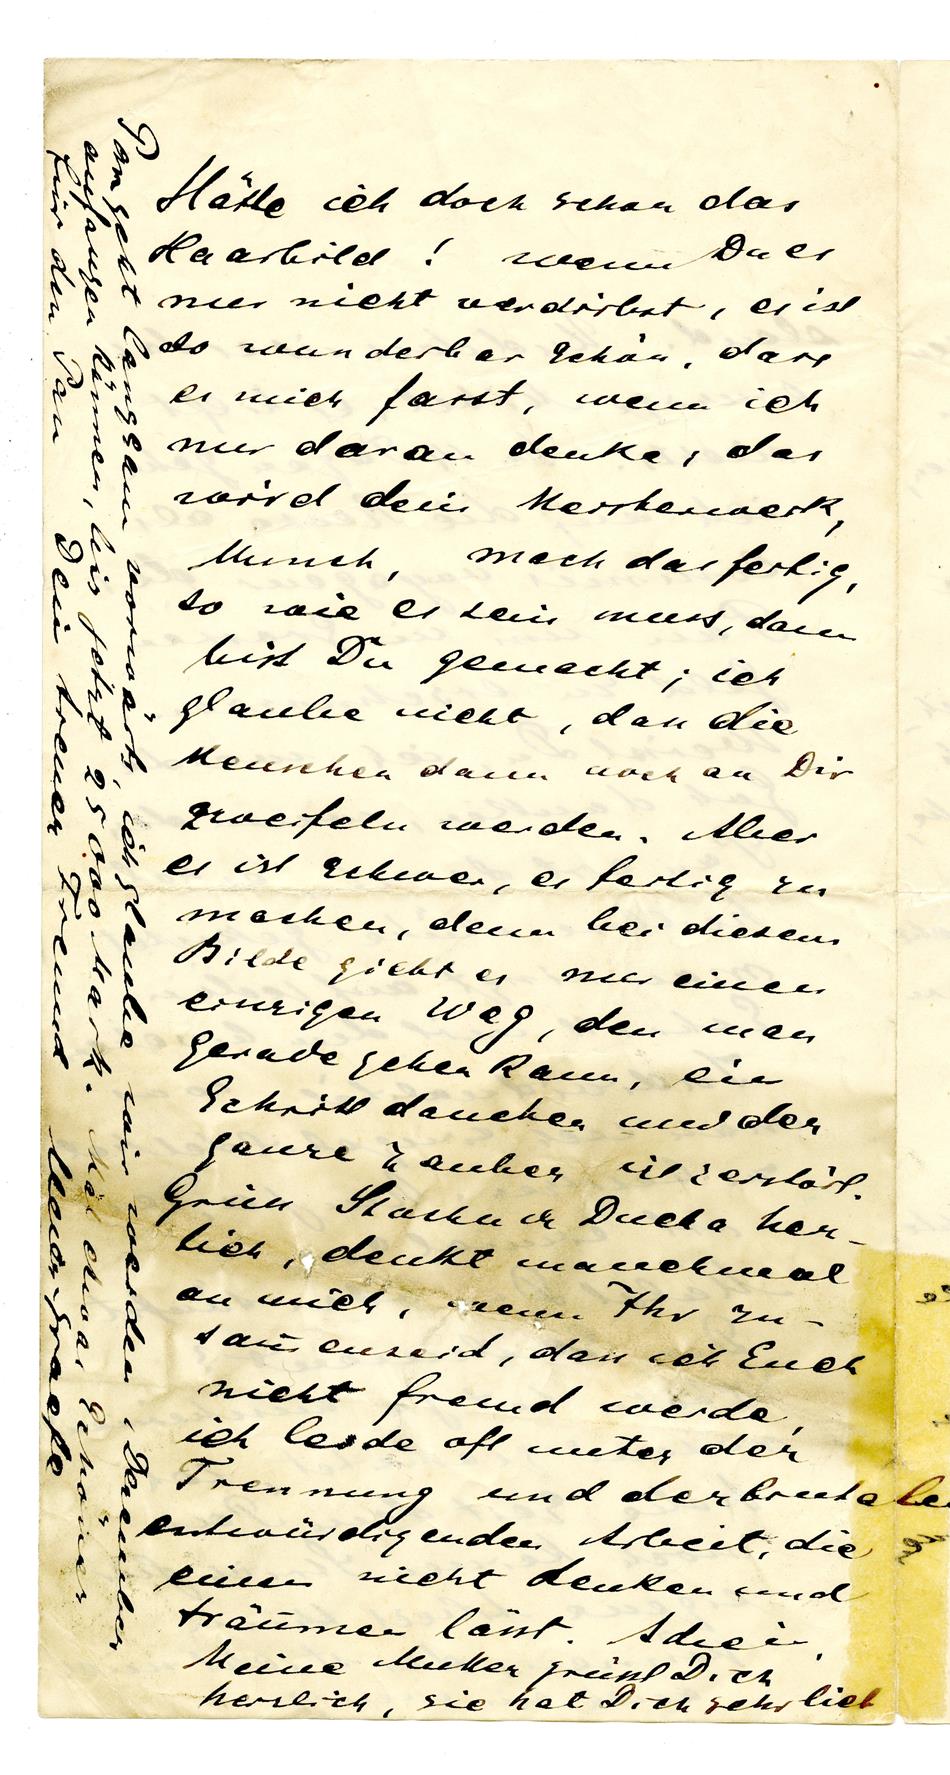 Hätte ich doch schon das
Haarbild! wenn Du es
nur nicht verdirbst, es ist
so wunderbar schön, dass
es mich fasst, wenn ich
nur daran denke, das
wird dein Meisterwerk,
Munch, mach das fertig,
so wie es sein muss, dann
bist Du gemacht; ich
glaube nicht, dass die
Menschen dann noch an Dir
zweifeln werden. Aber
es ist schwer, es fertig zu
machen, denn bei diesem
Bilde giebt es nur einen
einzigen Weg, den man
gerade gehen kann, ein
Schritt daneben und der
ganze Zauber ist zerstört.
Grüss Stachu u Ducha herz-
lich, denkt manchmal
an mich, wenn Ihr zu-
sam̄enseid, dass ich Euch
nicht fremd werde,
ich leide oft unter der
Trennung und der brutalen
entwürdigenden Arbeit, die
einen nicht denken und
träumen lässt. Adieu,
Meine Mutter grüsst Dich
herzlich, sie hat Dich sehr lieb
Pan geht langsam vorwärts, ich glaube wir werden, Dezember
anfangen können, bis jetzt 25000 Mark. Schöner
für den Pan Dein treuer Freund Meier-Graefe